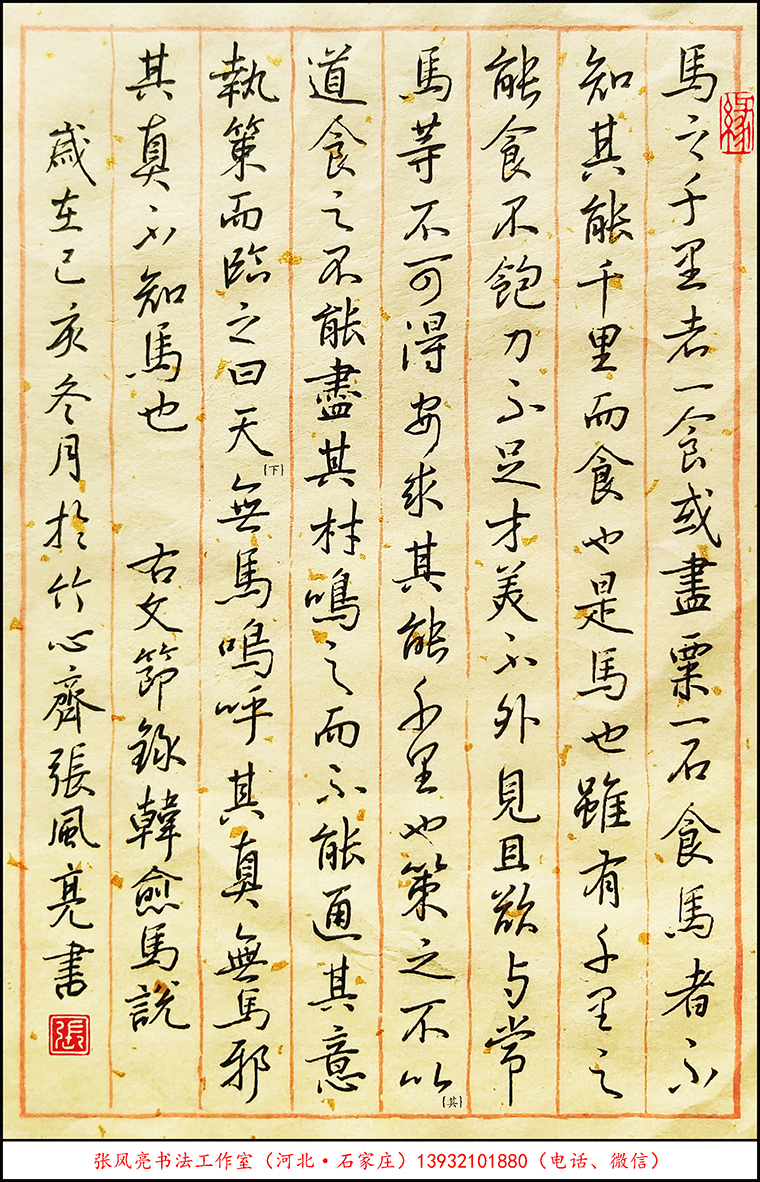 緣
馬之千里者一食或盡粟一石食馬者不
知其能千里而食也是馬也雖有千里之
能食不飽力不足才美不外見且欲与常
馬等不可得安求其能千里也策之不以[其]
道食之不能盡其材鳴之而不能通其意
執策而臨之曰天[下]無馬嗚呼其真無馬邪
其真不知馬也 古文節録韓愈馬說
歲在己亥冬月於竹心齋張風亮書
張
张风亮书法工作室（河北·石家庄）13932101880（电话、微信）